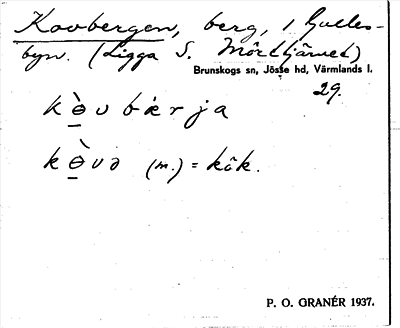 Kovbergen, berg, i Gulles-
byn. (Ligga S. Mörttjärnet)
Brunskogs sn, Jösse hd, Värmlands l.
29.
kò̱v bærja
kò̱və (m.) = kôk.
P. O. GRANÉR 1937.